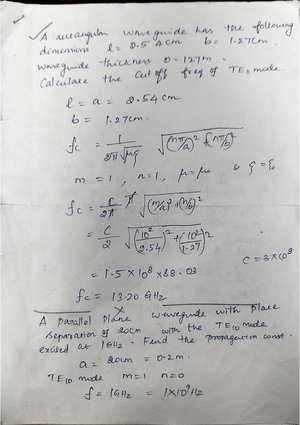 A rectangular waveguide has the following
dimensions l = 2.54cm b = 1.27cm.
waveguide thickness 0.127m.
Calculate the cut off freq of TE₁₁ mode.
l = a = 2.54cm
b = 1.27cm.
fc = 1/(2π√μϵ) √((mπ/a)² + (nπ/b)²)
m = 1, n = 1, μ = μ₀ & ϵ = ϵ₀
fc = c/2π π √((m/a)² + (n/b)²)
= c/2 √((10²/2.54)² + (10²/1.27)²)
C = 3×10⁸
= 1.5 × 10⁸ × 88.03
fc = 13.20 GHz
A parallel plane waveguide with plate
separation of 20cm with the TE₁₀ mode
excited at 1GHz. Find the propagation const.
a = 20cm = 0.2m.
TE₁₀ mode m=1 n=0
f = 1GHz = 1×10⁹Hz